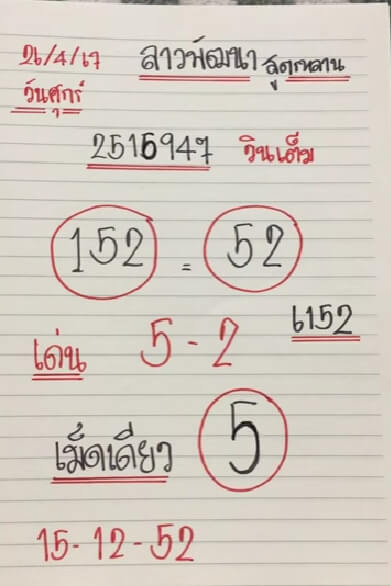 26/4/67 ลาวพัฒนา สูตรหลาน
วันศุกร์
2515947 วินเต็ม
152 = 52
6152
เด่น 5-2
เม็ดเดียว 5
15-12-52